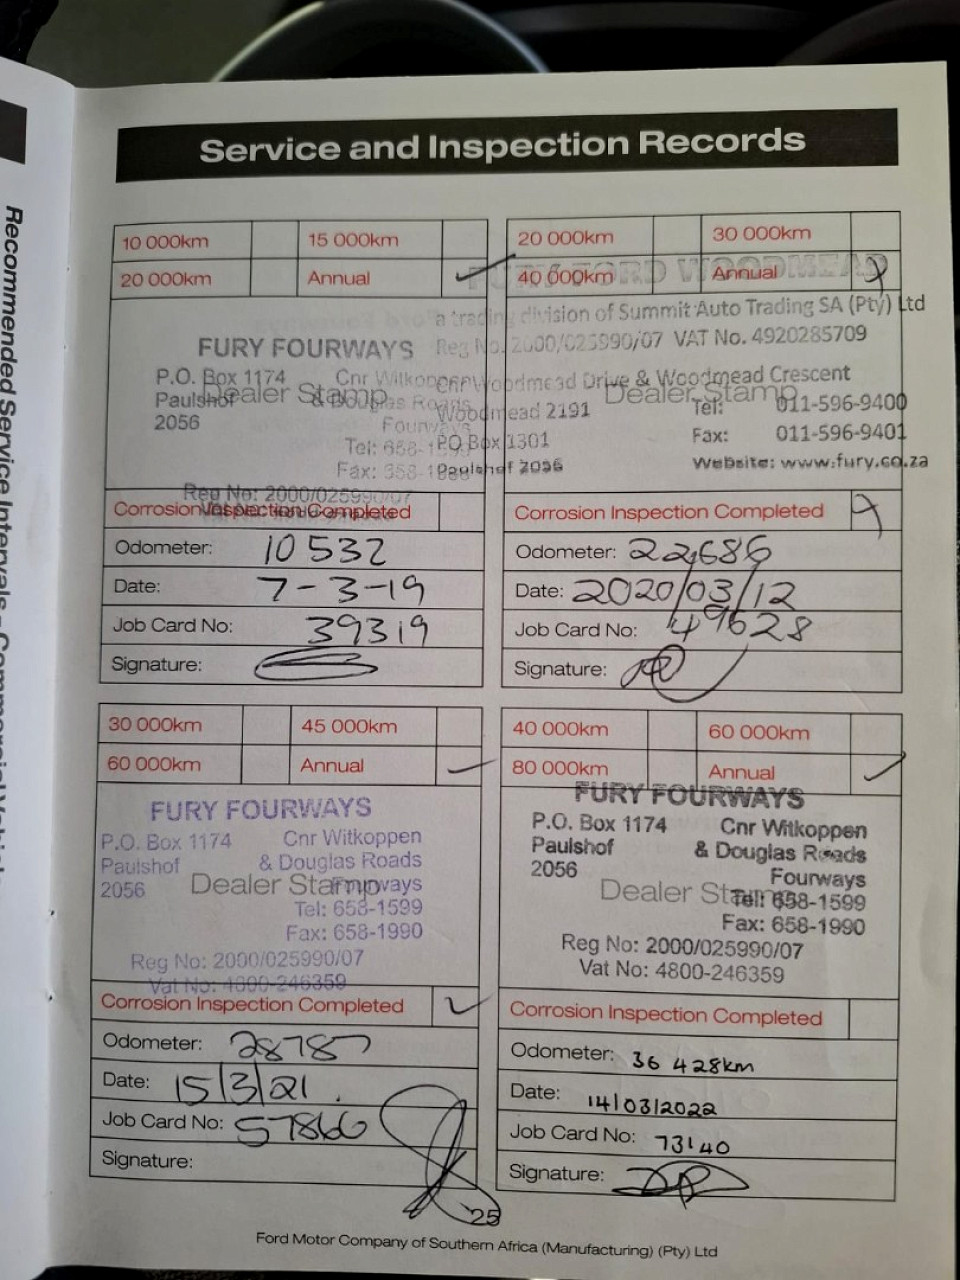 Recommended Service Intervals - Commercial
Service and Inspection Records
10 000km 15 000km
20 000km Annual
FURY FOURWAYS
P.O. Box 1174 Cnr Witkoppen
Paulshof & Douglas Roads
2056 Fourways
Dealer Stamp
Tel: 658-1599
Fax: 658-1990
Reg No: 2000/025990/07
Corrosion Inspection Completed
Odometer: 10 532
Date: 7-3-19
Job Card No: 39319
Signature:
20 000km 30 000km
40 000km Annual
FURY FORD WOODMEAD
a trading division of Summit Auto Trading SA (Pty) Ltd
Reg No. 2000/025990/07 VAT No. 4920285709
Cnr Woodmead Drive & Woodmead Crescent
Dealer Stamp
Woodmead 2191 Tel: 011-596-9400
PO Box 1301 Fax: 011-596-9401
Paulshof 2056 Website: www.fury.co.za
Corrosion Inspection Completed
Odometer: 22,686
Date: 2020/03/12
Job Card No: 49628
Signature:
30 000km 45 000km
60 000km Annual
FURY FOURWAYS
P.O. Box 1174 Cnr Witkoppen
Paulshof & Douglas Roads
2056 Fourways
Dealer Stamp
Tel: 658-1599
Fax: 658-1990
Reg No: 2000/025990/07
Vat No: 4800-246359
Corrosion Inspection Completed
Odometer: 28787
Date: 15/3/21.
Job Card No: 57866
Signature:
40 000km 60 000km
80 000km Annual
FURY FOURWAYS
P.O. Box 1174 Cnr Witkoppen
Paulshof & Douglas Roads
2056 Fourways
Dealer Stamp
Tel: 658-1599
Fax: 658-1990
Reg No: 2000/025990/07
Vat No: 4800-246359
Corrosion Inspection Completed
Odometer: 36 428km
Date: 14/03/2022
Job Card No: 73140
Signature:
25
Ford Motor Company of Southern Africa (Manufacturing) (Pty) Ltd